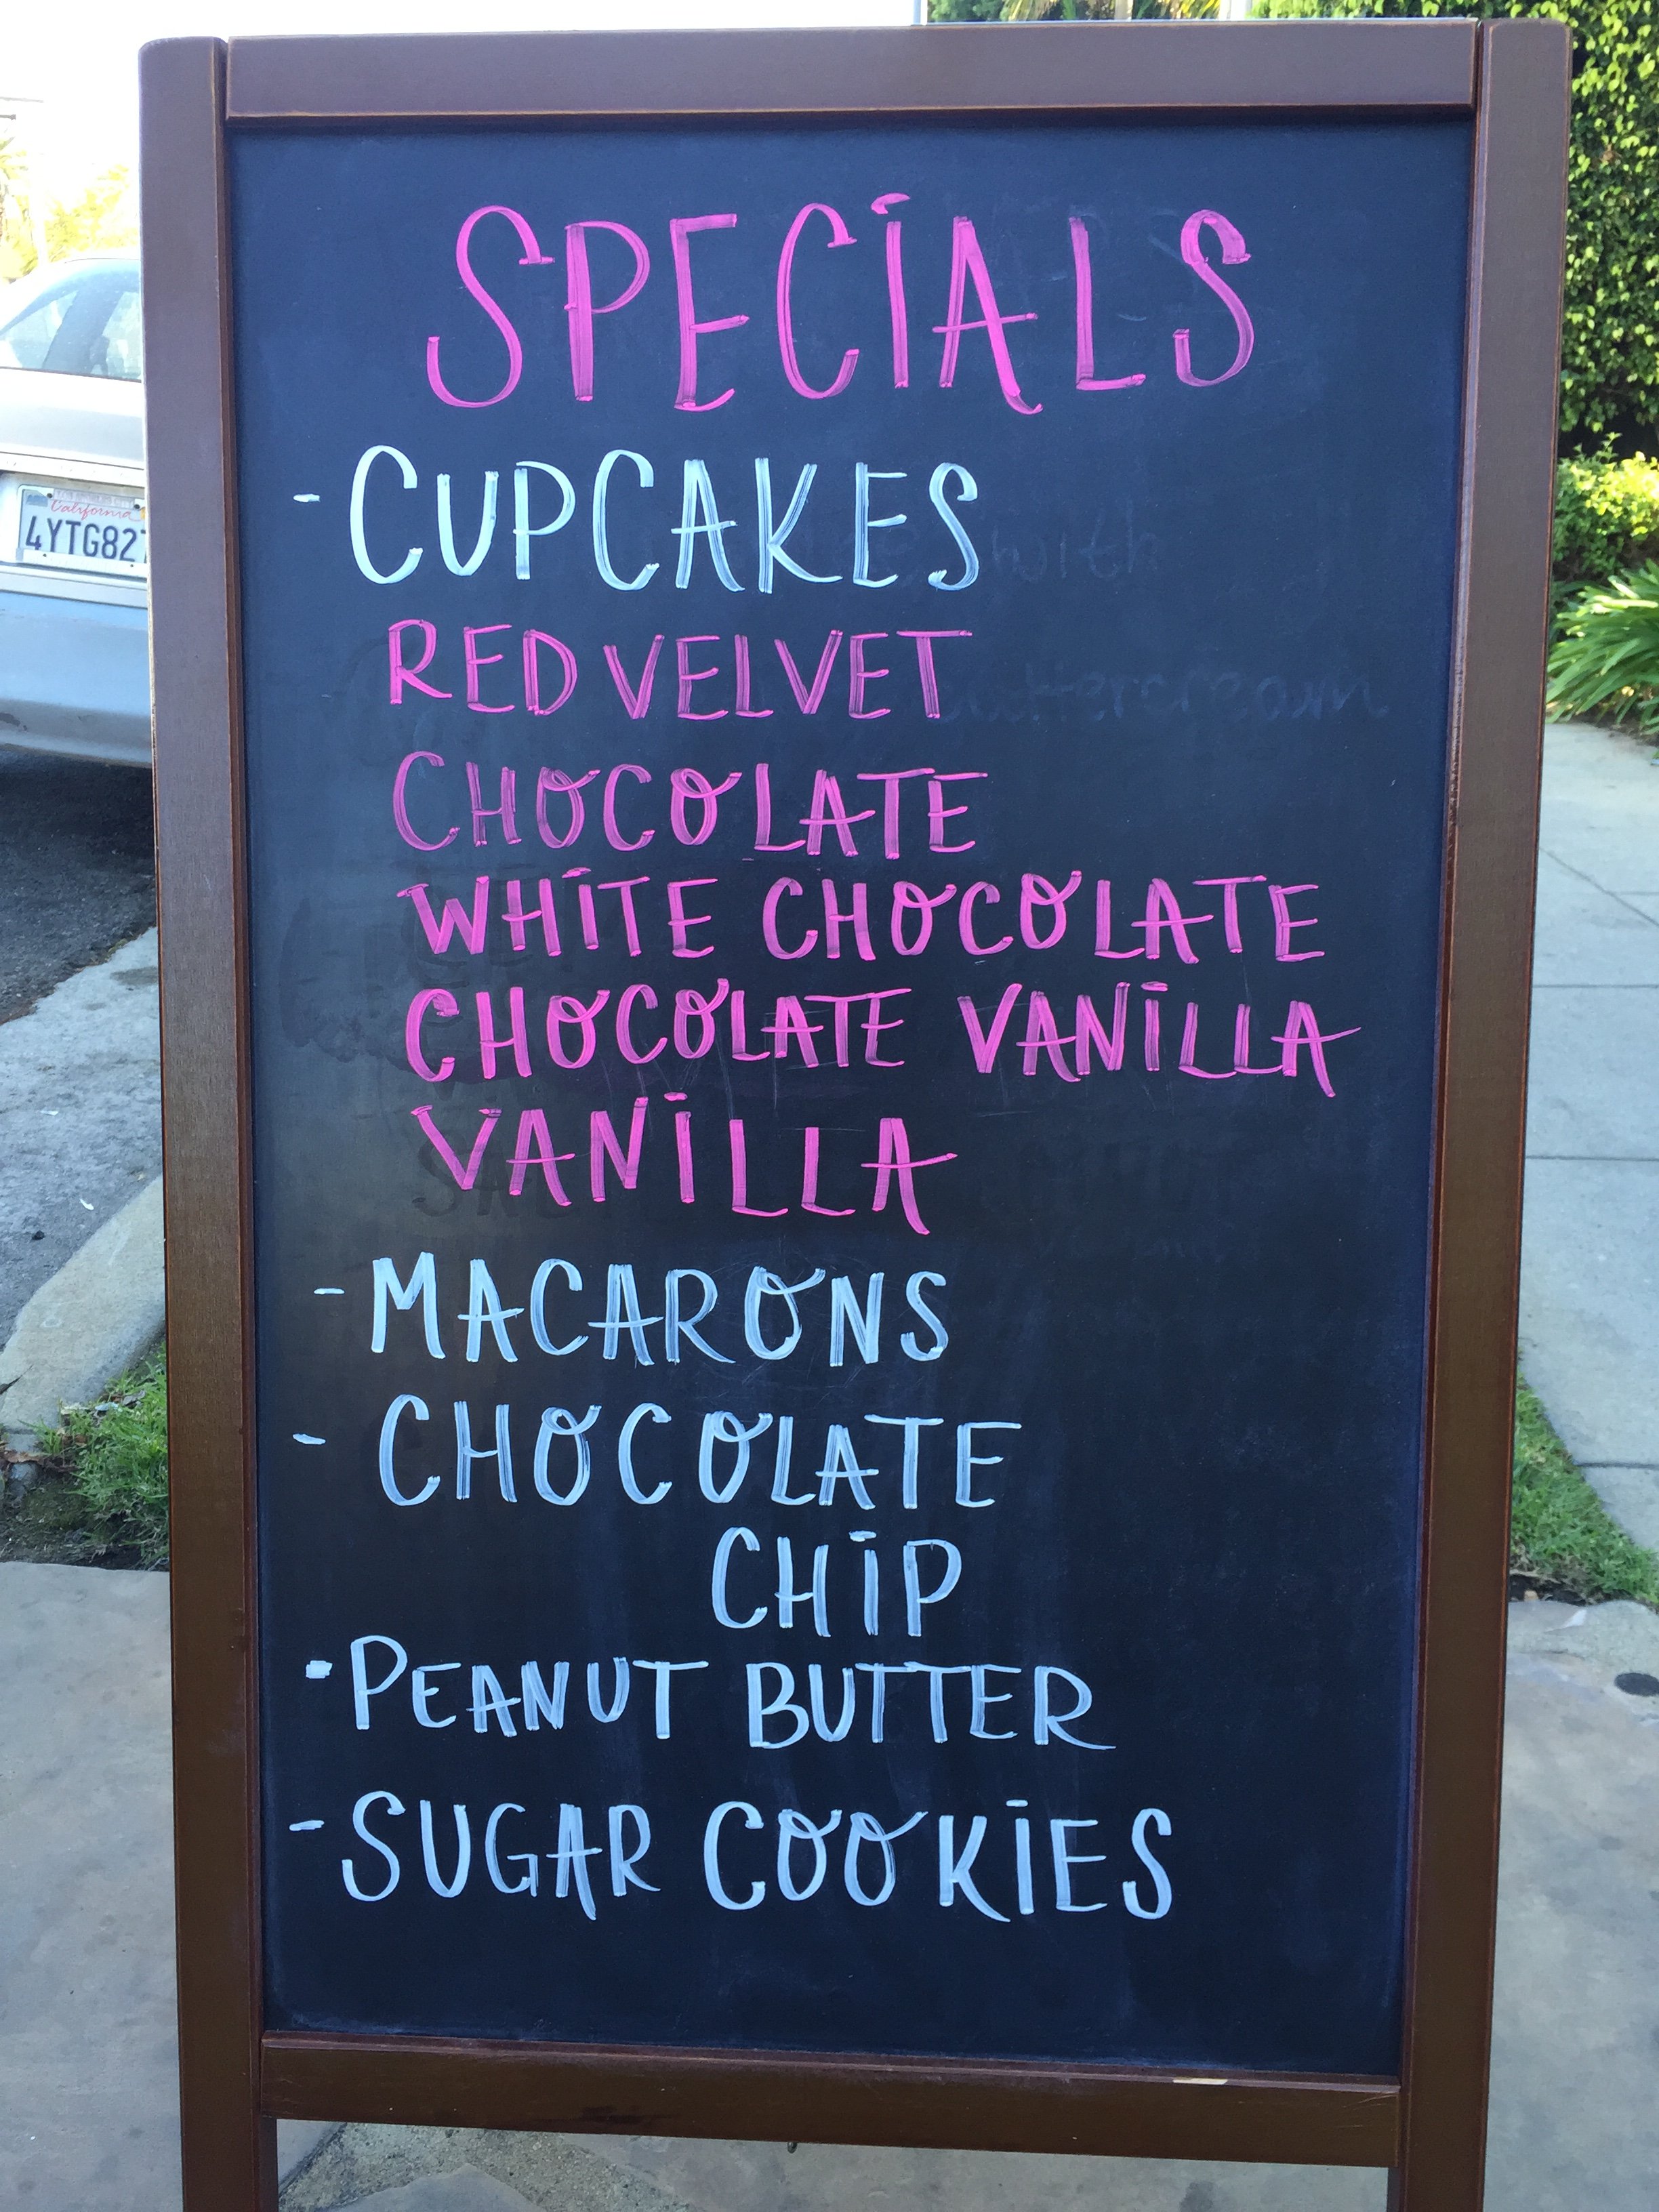 SPECIALS
- CUPCAKES
with
RED VELVET
buttercream
CHOCOLATE
WHITE CHOCOLATE
CHOCOLATE VANILLA
VANILLA
- MACARONS
- CHOCOLATE
CHIP
- PEANUT BUTTER
- SUGAR COOKIES
California
4YTG827